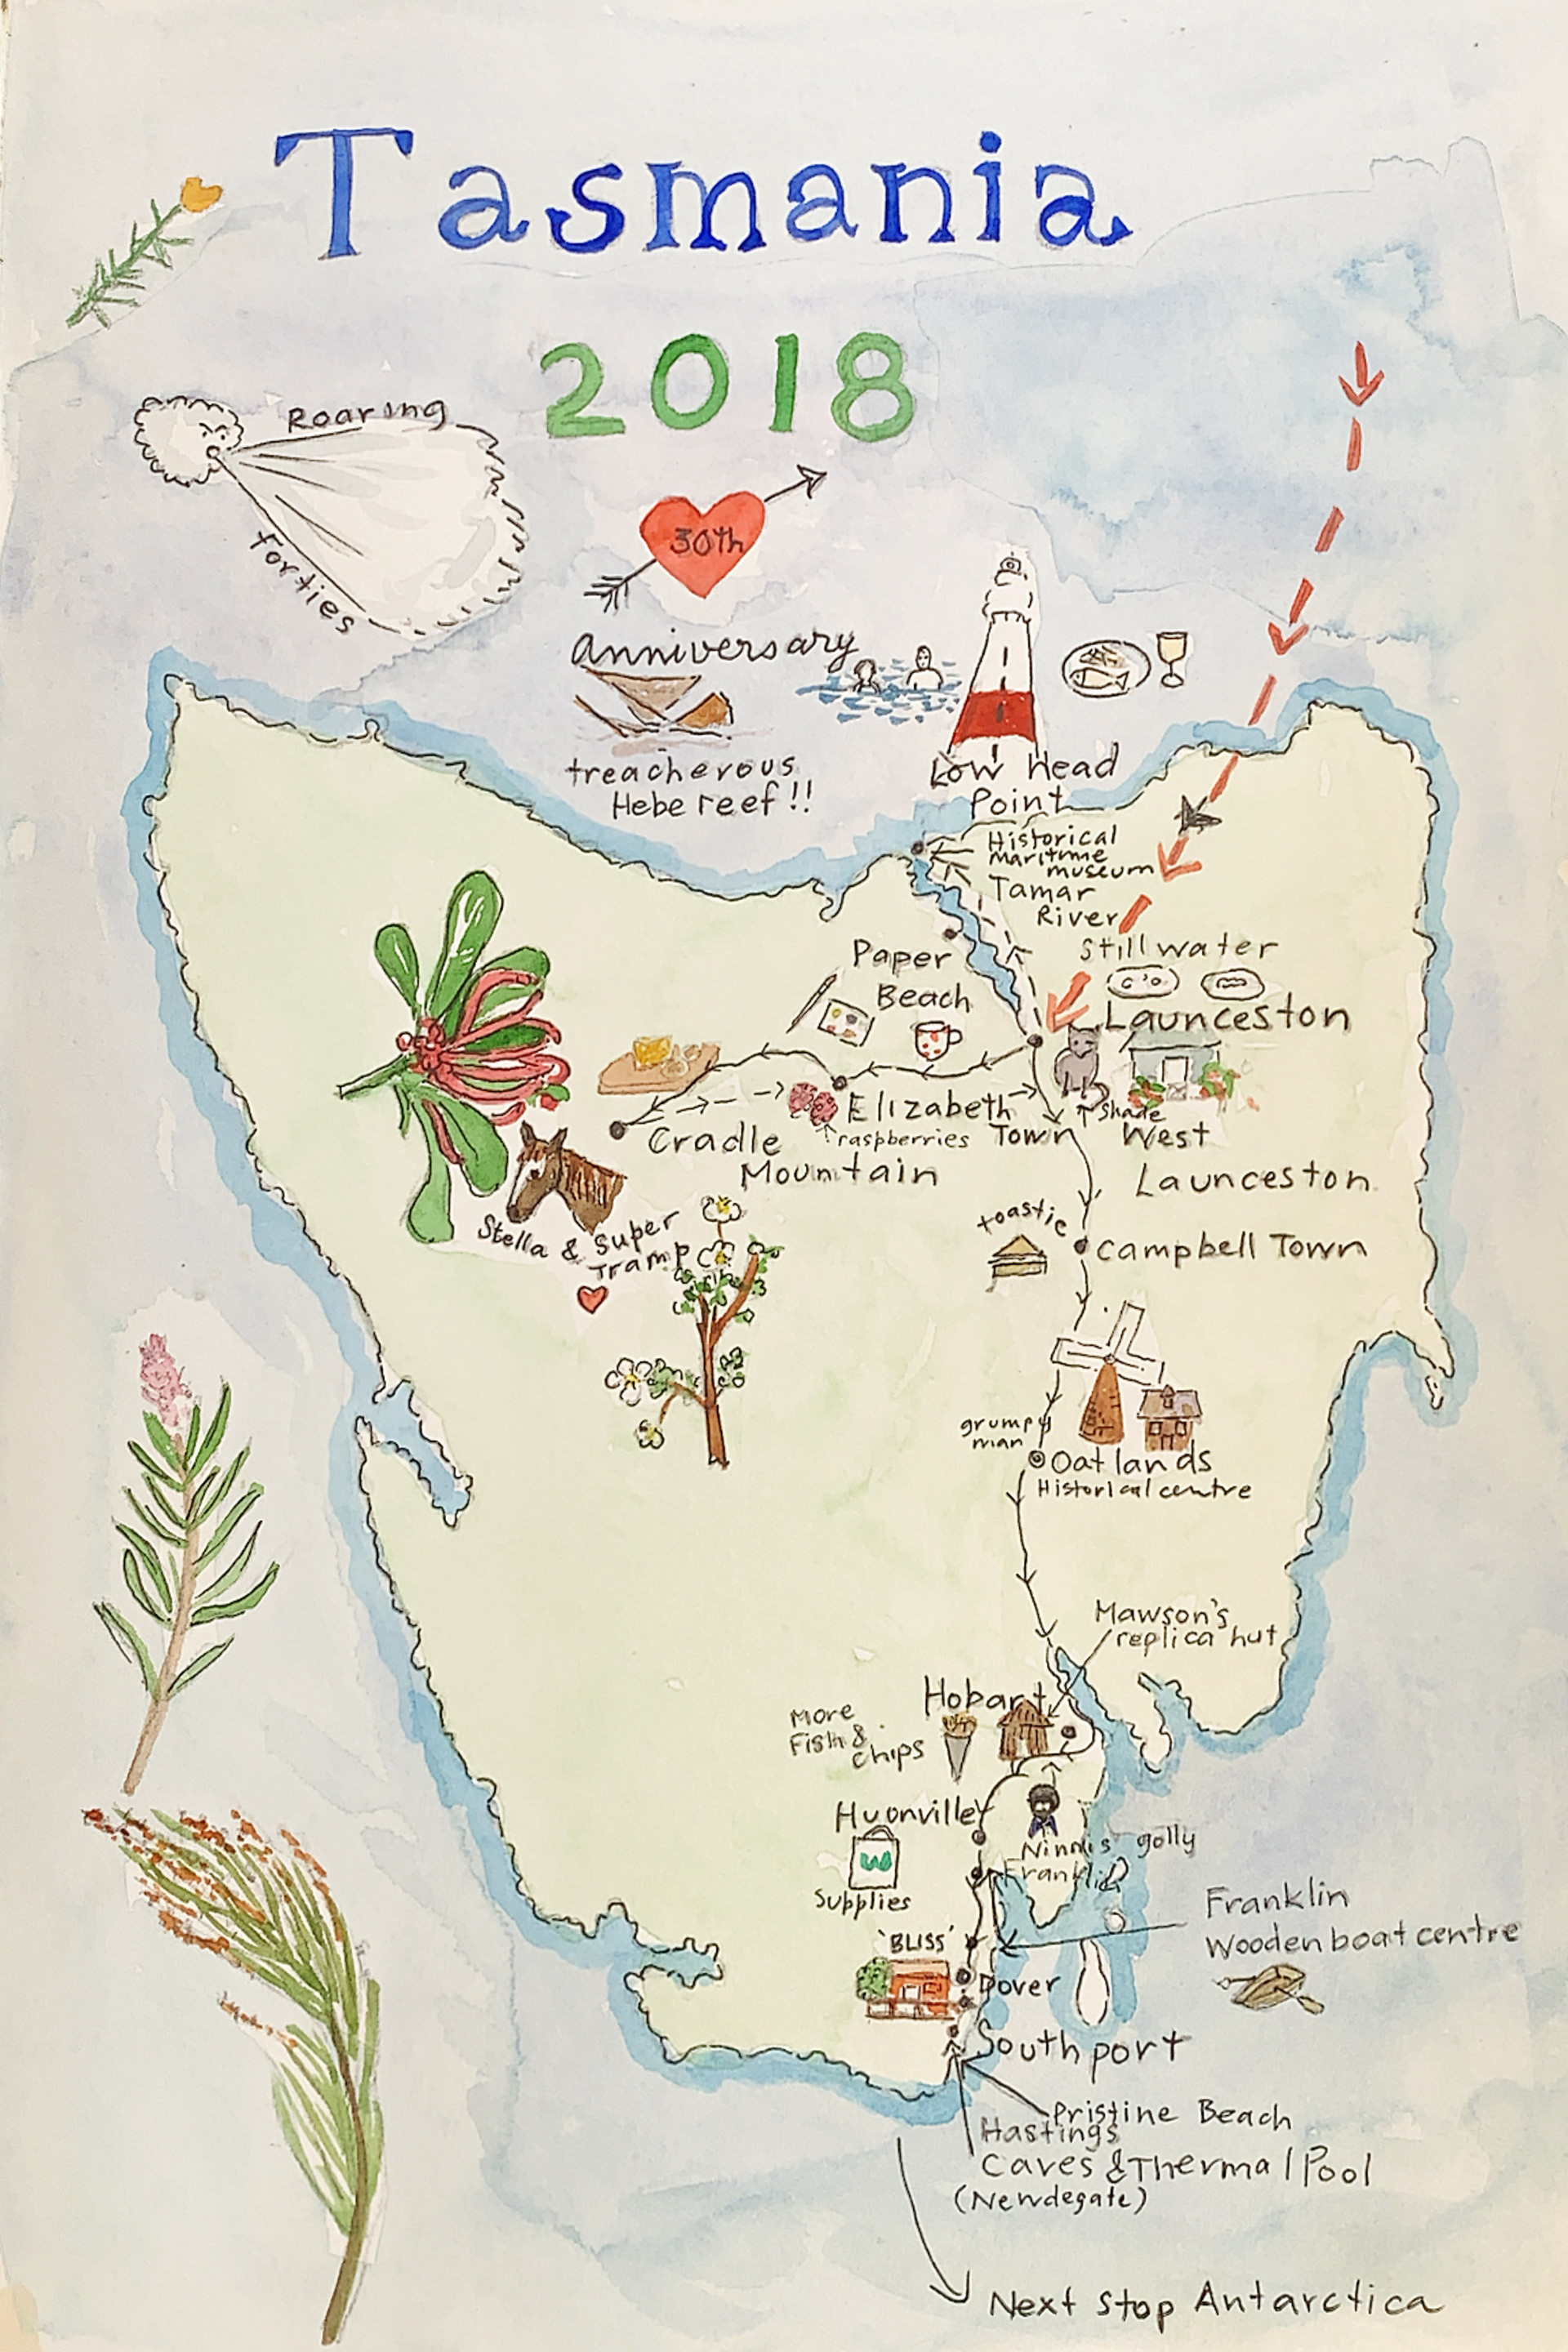 Tasmania
2018
Roaring
forties
30th
Anniversary
treacherous
Hebe reef!!
Low Head
Point
Historical
Maritime
museum
Tamar
River
Stillwater
Launceston
Paper
Beach
Elizabeth
Town
raspberries
Shade
West
Launceston
Cradle
Mountain
Stella & Super
Tramp
toastie
Campbell Town
grumpy
man
Oatlands
Historical centre
Mawson's
replica hut
Hobart
More
Fish &
Chips
Huonville
Ninnis golly
Franklin
W
Supplies
Franklin
Wooden boat centre
'BLISS'
Dover
Southport
Pristine Beach
Hastings
Caves & Thermal Pool
(Newdegate)
Next stop Antarctica